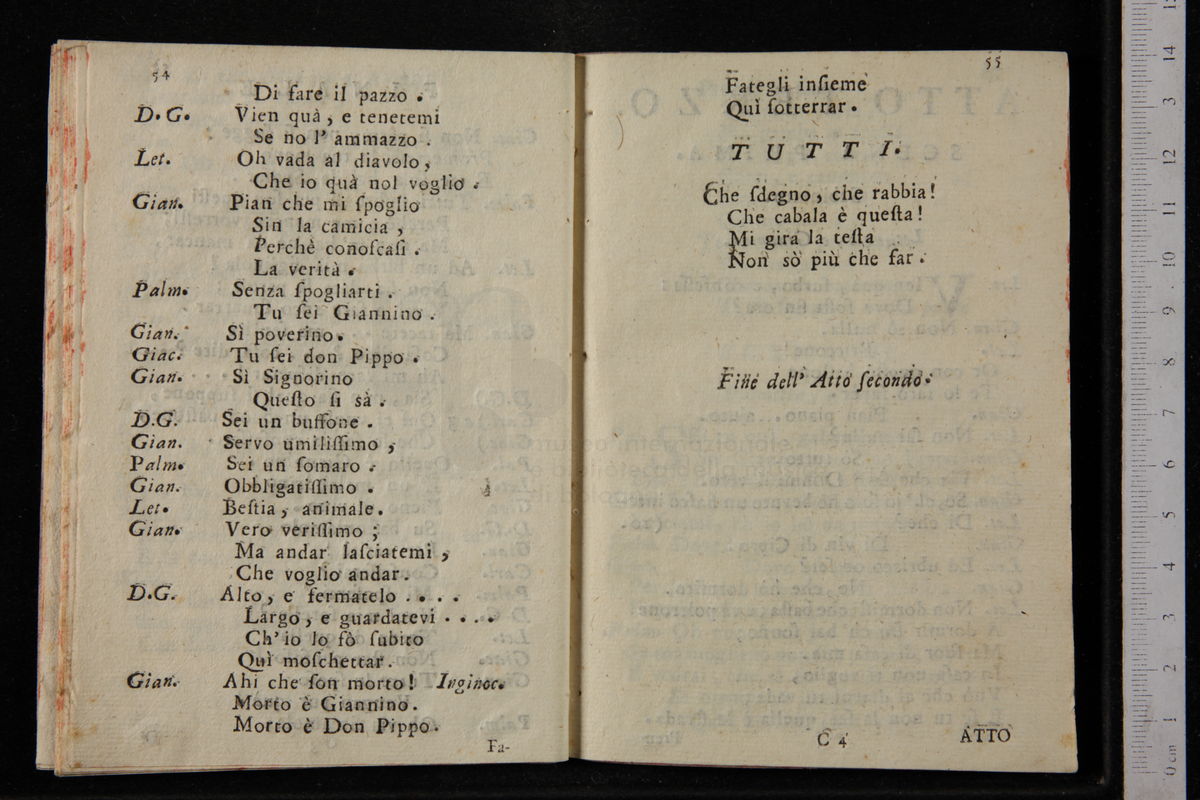 54
Di fare il pazzo .
D. G. Vien quà , e tenetemi
Se no l' ammazzo .
Let. Oh vada al diavolo ,
Che io quà nol voglio .
Gian. Pian che mi ſpoglio
Sin la camicia ,
Perchè conoſcaſi .
La verità .
Palm. Senza ſpogliarti .
Tu ſei Giannino .
Gian. Sì poverino .
Giac. Tu ſei don Pippo .
Gian. Sì Signorino
Queſto ſi sà .
D.G. Sei un buffone .
Gian. Servo umiliſſimo ,
Palm. Sei un ſomaro .
Gian. Obbligatiſſimo .
Let. Beſtia , animale .
Gian. Vero veriſſimo ;
Ma andar laſciatemi ,
Che voglio andar .
D.G. Alto , e fermatelo . . . .
Largo , e guardatevi . . . .
Ch' io lo fò ſubito
Quì moſchettar .
Gian. Ahi che ſon morto ! Inginoc.
Morto è Giannino .
Morto è Don Pippo .
Fa-
55
Fategli inſieme
Quì ſotterrar .
T U T T I.
Che ſdegno , che rabbia !
Che cabala è queſta !
Mi gira la teſta
Non sò più che far .
Fine dell' Atto ſecondo .
C 4
ATTO
museo internazionale
e biblioteca della musica
di bologna
0 cm 1 2 3 4 5 6 7 8 9 10 11 12 3 14